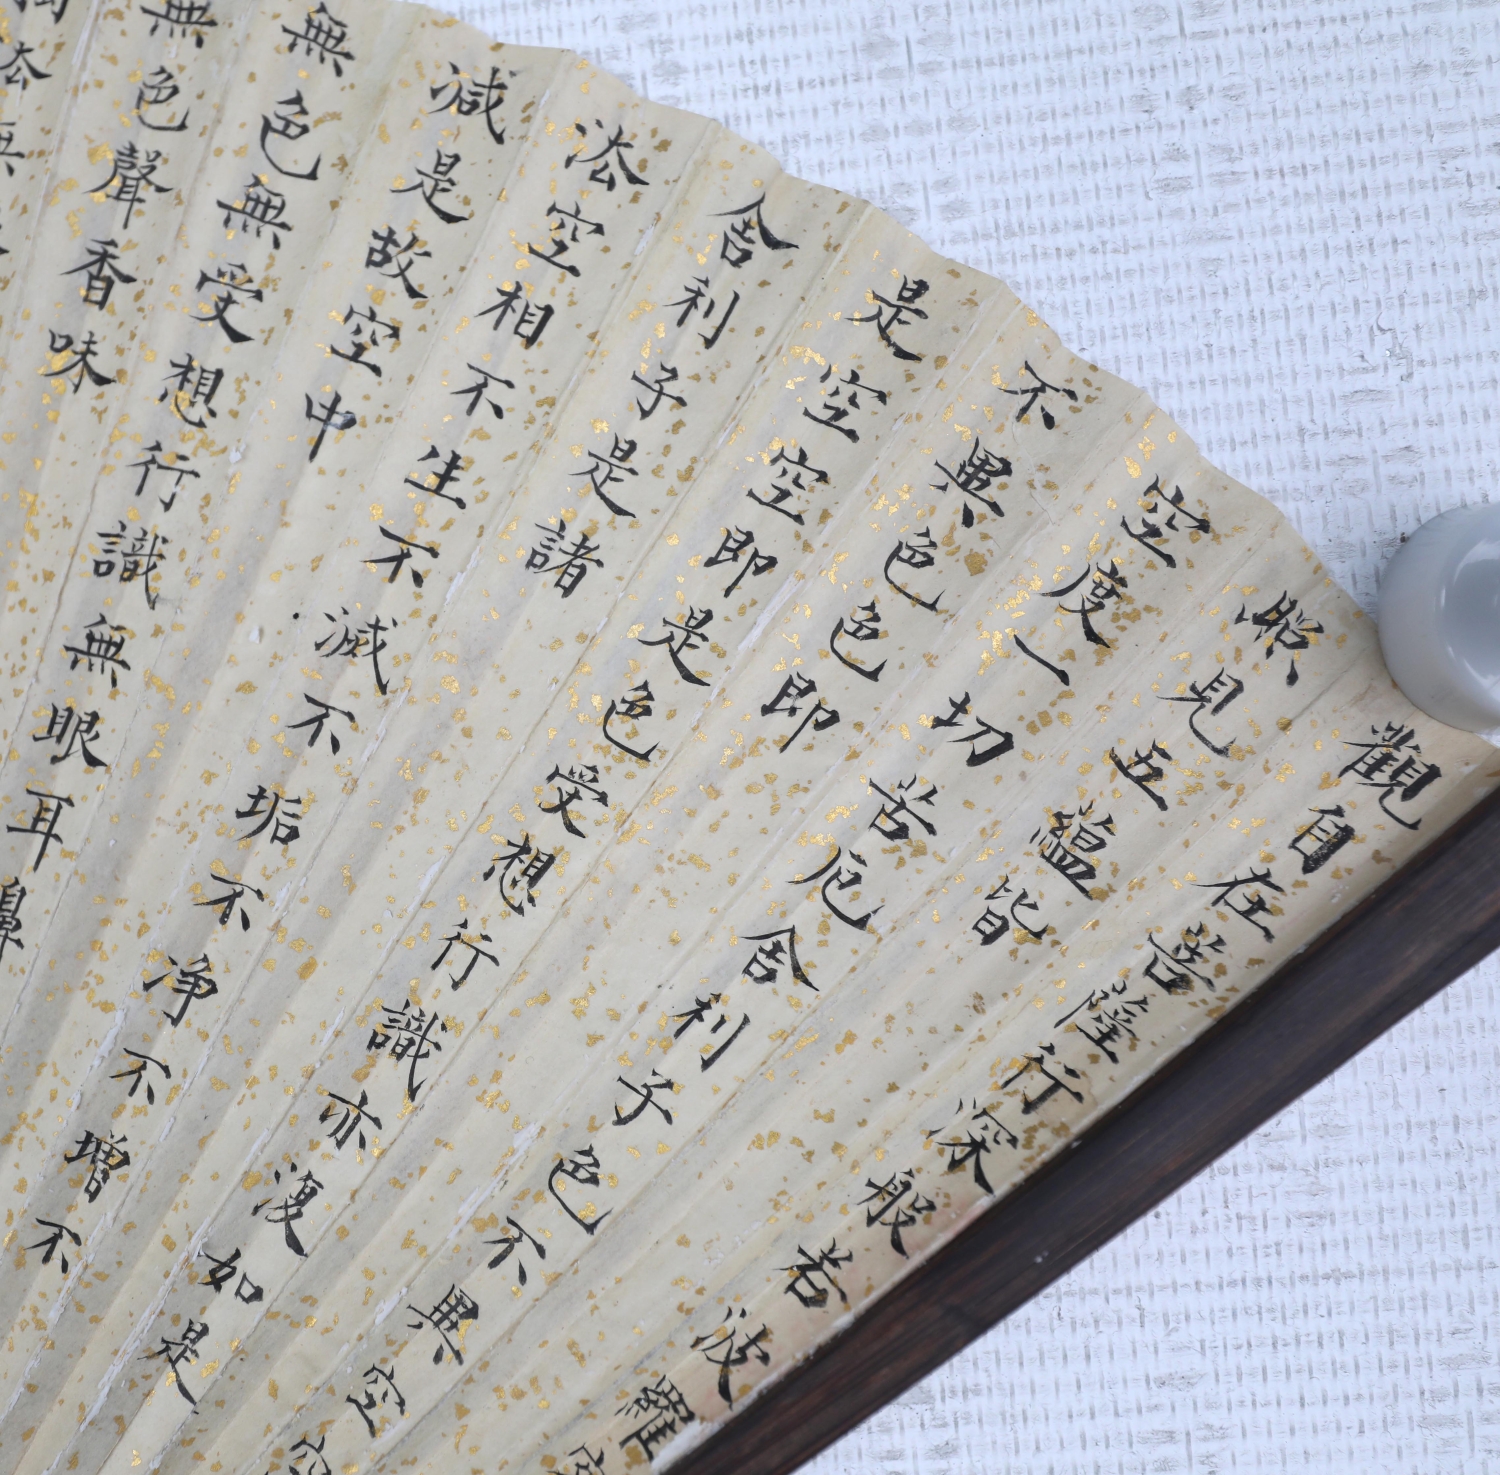 觀自在菩薩行深般若波羅
照見五蘊皆
空度一切苦厄舍利子色不異空空
不異色色即
是空空即是色受想行識亦復如是
舍利子是諸
法空相不生不滅不垢不净不增不
减是故空中
無色無受想行識無眼耳鼻
無色聲香味
法無